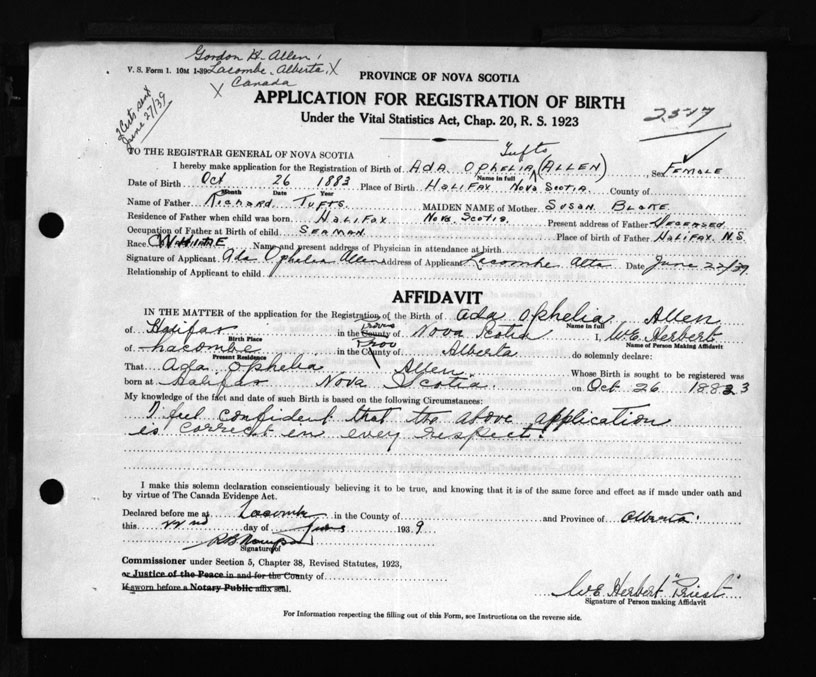 Gordon H. Allen
V. S. Form 1. 10M 1-39 Lacombe, Alberta, X
X Canada
PROVINCE OF NOVA SCOTIA
2 Certs sent
June 27/39
APPLICATION FOR REGISTRATION OF BIRTH
2517
Under the Vital Statistics Act, Chap. 20, R. S. 1923
TO THE REGISTRAR GENERAL OF NOVA SCOTIA
Tufts
I hereby make application for the Registration of Birth of ADA OPHELIA (ALLEN), Sex FEMALE
Name in full
Date of Birth Oct 26 1883 Place of Birth HALIFAX NOVA SCOTIA County of
Month Date Year
Name of Father RICHARD TUFTS. MAIDEN NAME of Mother SUSAN BLAKE
Residence of Father when child was born HALIFAX NOVA SCOTIA Present address of Father DECEASED
Occupation of Father at Birth of child SEAMAN Place of birth of Father HALIFAX N.S.
Race WHITE Name and present address of Physician in attendance at birth
Signature of Applicant Ada Ophelia Allen Address of Applicant Lacombe Alta Date June 22/39
Relationship of Applicant to child
AFFIDAVIT
IN THE MATTER of the application for the Registration of the Birth of Ada Ophelia Allen
Name in full
of Halifax in the County Provin of Nova Scotia I, W.E. Herbert
Birth Place Name of Person Making Affidavit
of Lacombe in the County Prov of Alberta do solemnly declare:
Present Residence
That Ada Ophelia Allen. Whose Birth is sought to be registered was
born at Halifax Nova Scotia. on Oct 26 1883
My knowledge of the fact and date of such Birth is based on the following Circumstances:
I feel confident that the above application
is correct in every respect.
I make this solemn declaration conscientiously believing it to be true, and knowing that it is of the same force and effect as if made under oath and
by virtue of The Canada Evidence Act.
Declared before me at Lacombe in the County of and Province of Alberta.
this 22nd day of June 1939
Signature of
Commissioner under Section 5, Chapter 38, Revised Statutes, 1923,
or Justice of the Peace in and for the County of
If sworn before a Notary Public affix seal.
W.E. Herbert "Priest"
Signature of Person making Affidavit
For Information respecting the filling out of this Form, see Instructions on the reverse side.